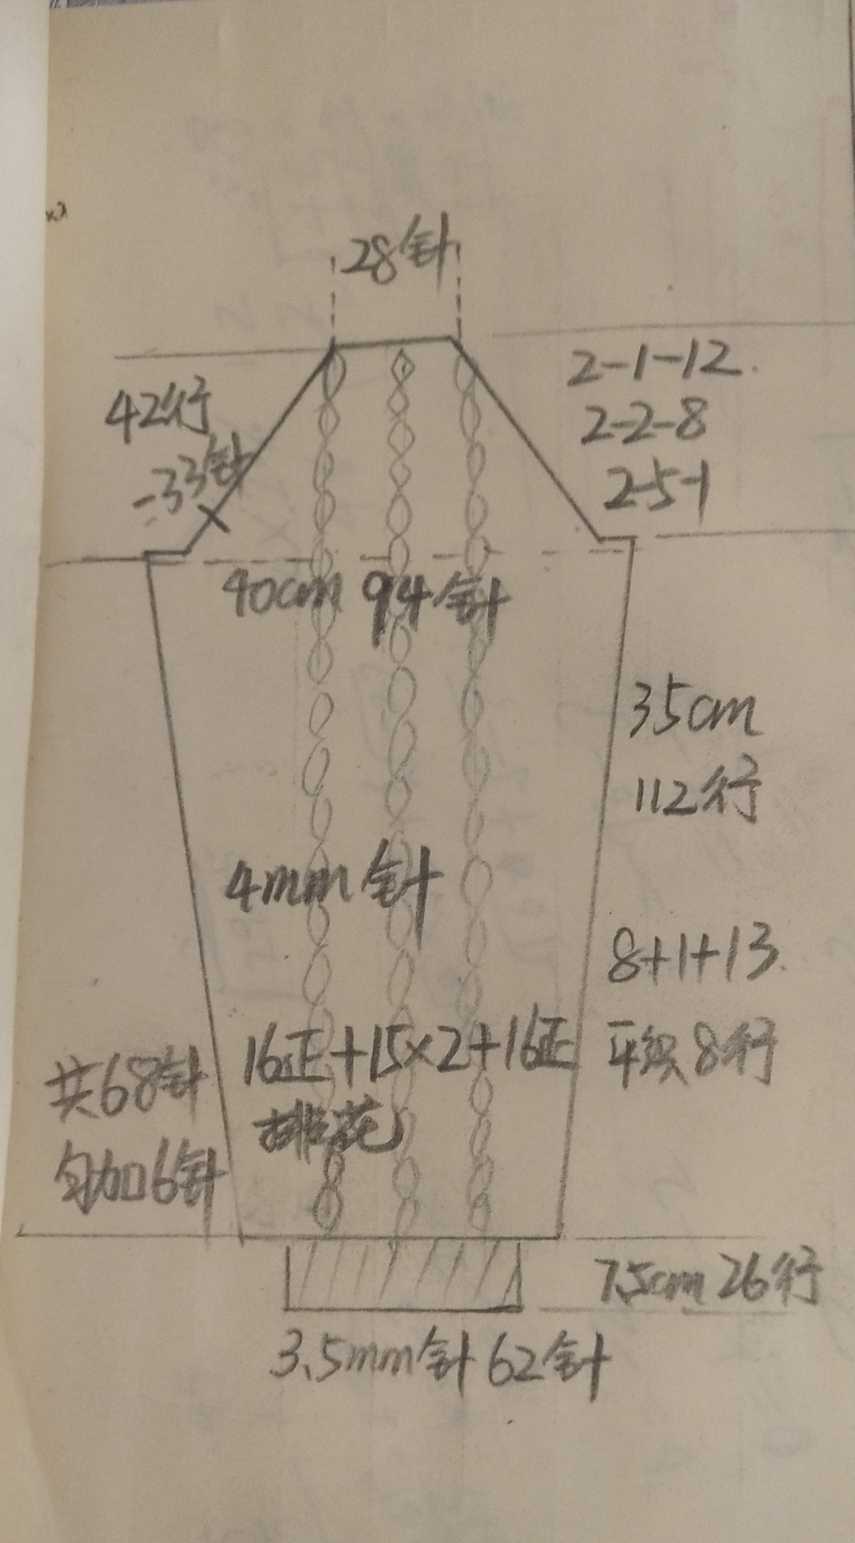 28针
42行
-33针
2-1-12
2-2-8
2-5-1
40cm 94针
35cm
112行
4mm针
8+1+13
平织8行
16正+15×2+16正
排花
共68针
匀加6针
7.5cm 26行
3.5mm针 62针